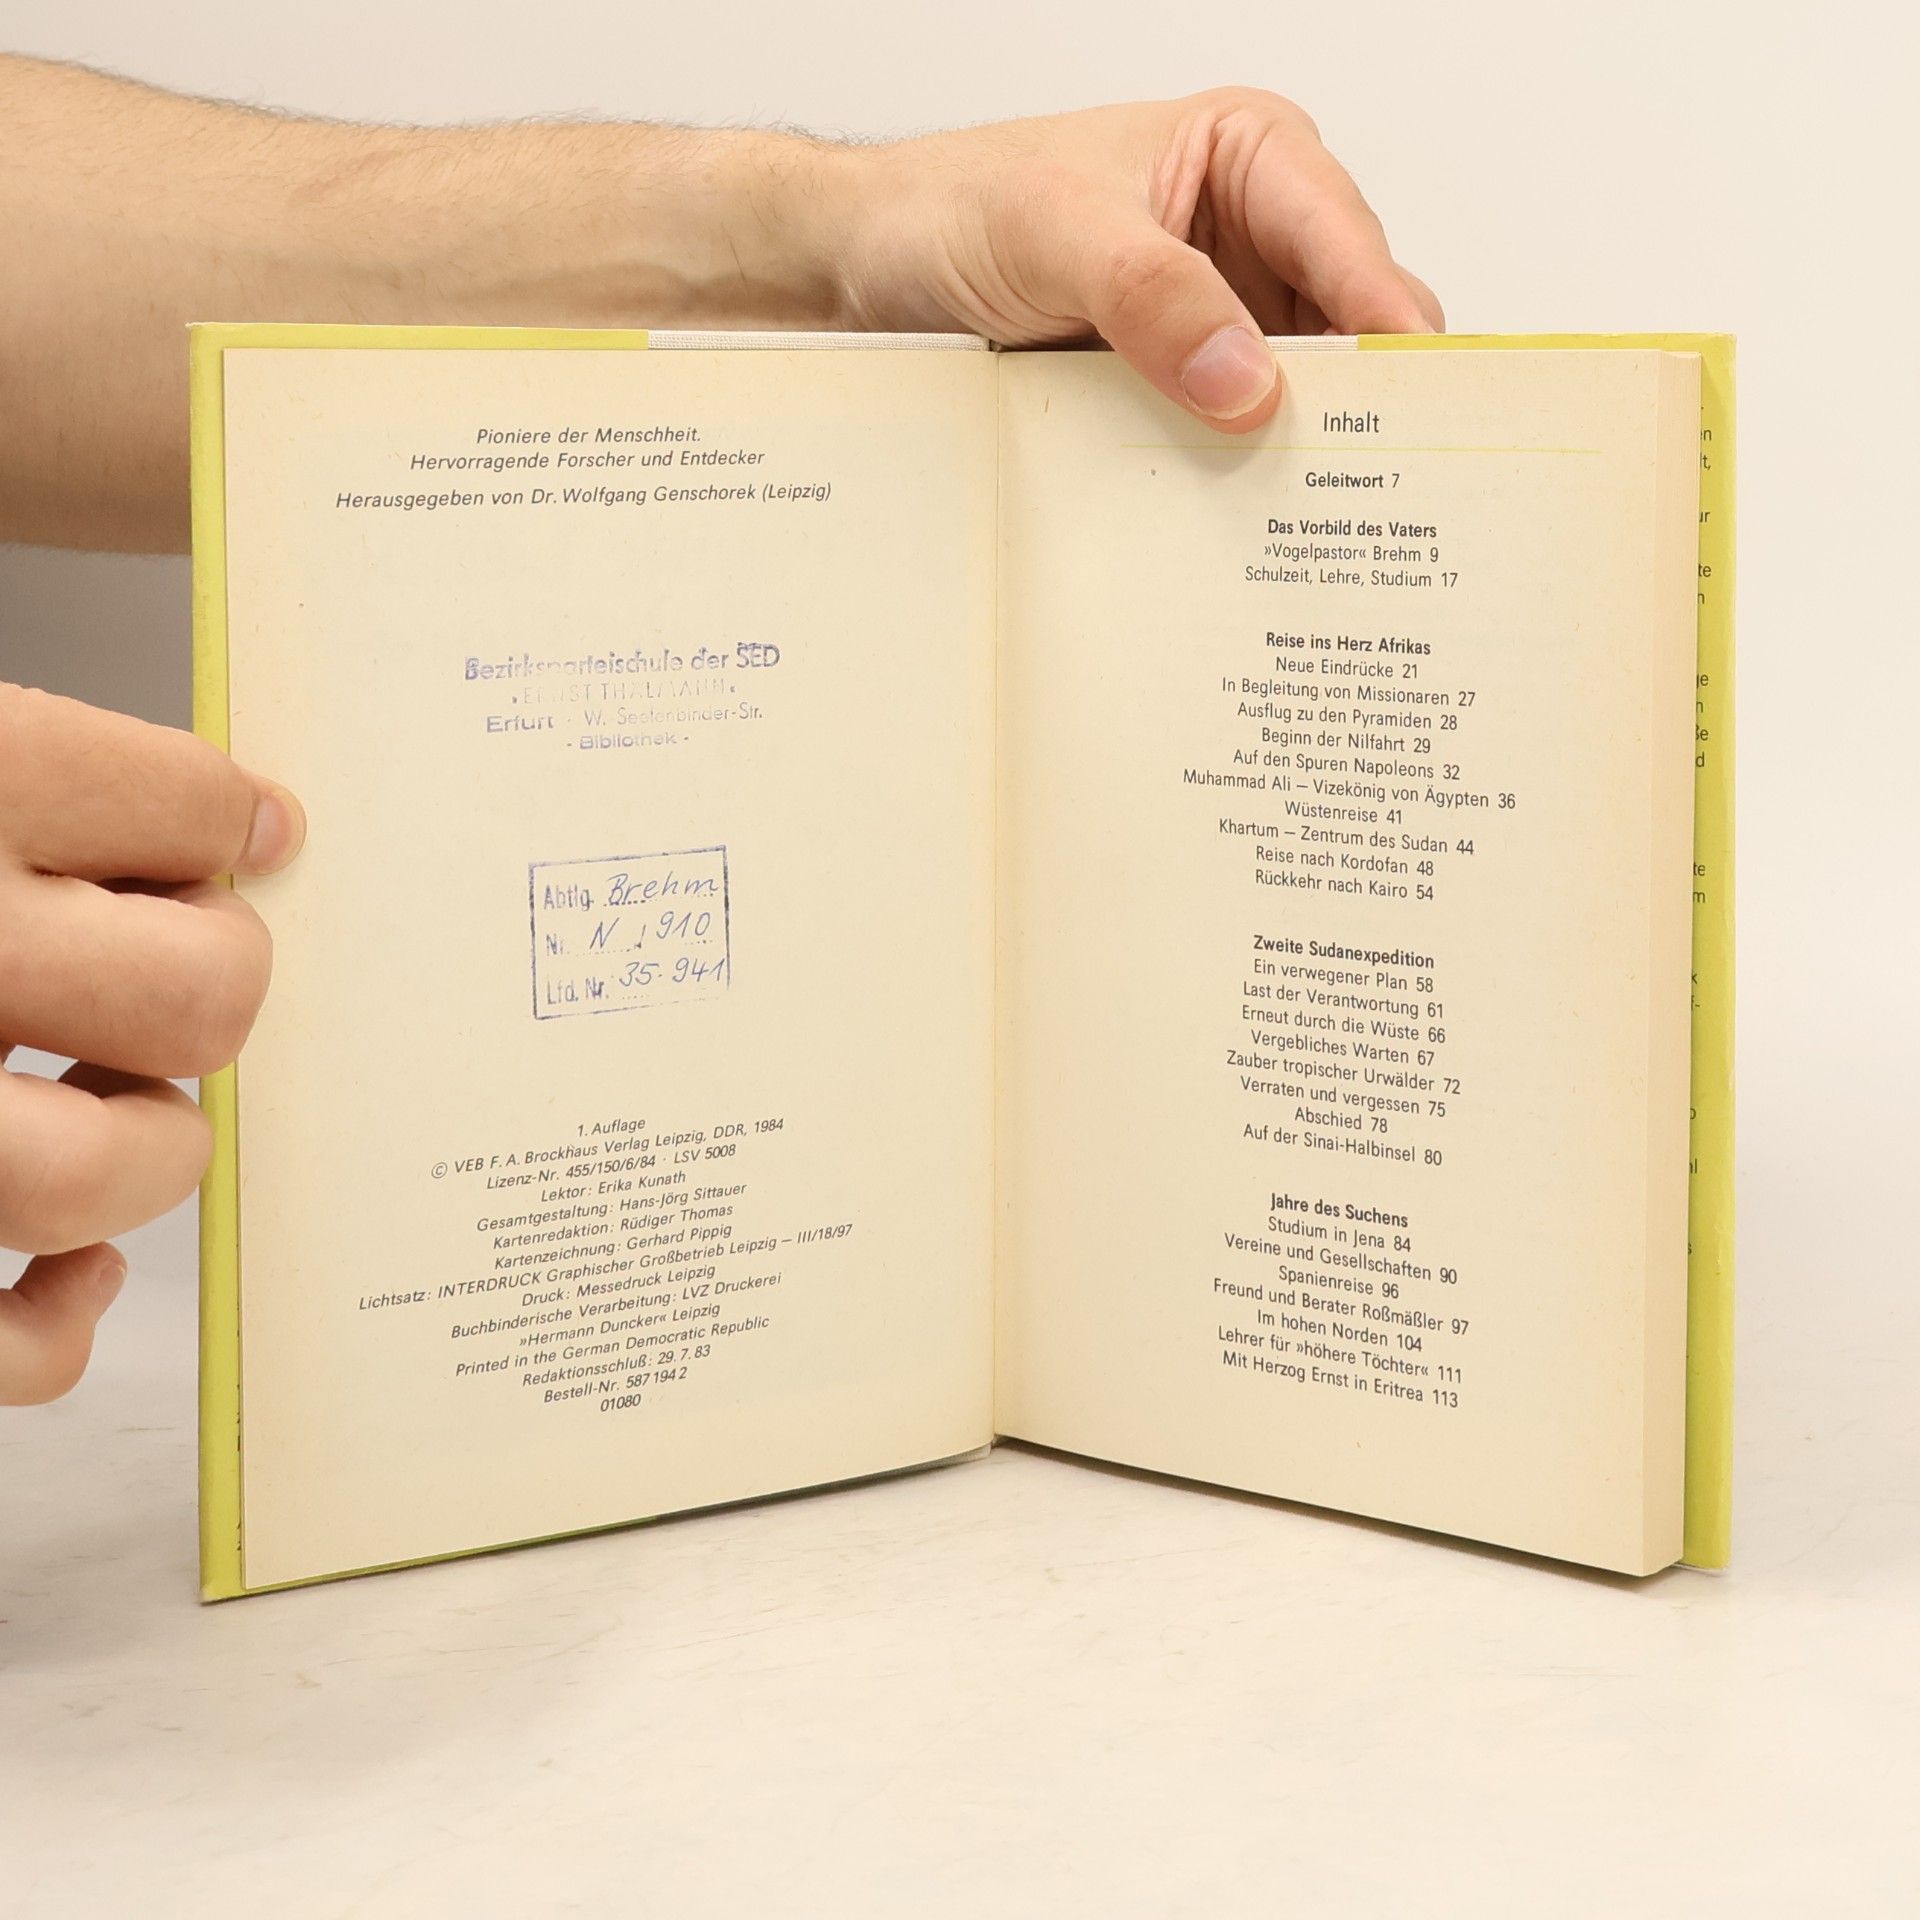 Pioniere der Menschheit.
Hervorragende Forscher und Entdecker
Herausgegeben von Dr. Wolfgang Genschorek (Leipzig)
Bezirksparteischule der SED
"ERNST THÄLMANN"
Erfurt · W.-Seelenbinder-Str.
- Bibliothek -
Abtlg. Brehm
Nr. N 910
Lfd. Nr. 35-941
1. Auflage
© VEB F. A. Brockhaus Verlag Leipzig, DDR, 1984
Lizenz-Nr. 455/150/6/84 · LSV 5008
Lektor: Erika Kunath
Gesamtgestaltung: Hans-Jörg Sittauer
Kartenredaktion: Rüdiger Thomas
Kartenzeichnung: Gerhard Pippig
Lichtsatz: INTERDRUCK Graphischer Großbetrieb Leipzig – III/18/97
Druck: Messedruck Leipzig
Buchbinderische Verarbeitung: LVZ Druckerei
»Hermann Duncker« Leipzig
Printed in the German Democratic Republic
Redaktionsschluß: 29. 7. 83
Bestell-Nr. 587 194 2
01080
Inhalt
Geleitwort 7
Das Vorbild des Vaters
»Vogelpastor« Brehm 9
Schulzeit, Lehre, Studium 17
Reise ins Herz Afrikas
Neue Eindrücke 21
In Begleitung von Missionaren 27
Ausflug zu den Pyramiden 28
Beginn der Nilfahrt 29
Auf den Spuren Napoleons 32
Muhammad Ali – Vizekönig von Ägypten 36
Wüstenreise 41
Khartum – Zentrum des Sudan 44
Reise nach Kordofan 48
Rückkehr nach Kairo 54
Zweite Sudanexpedition
Ein verwegener Plan 58
Last der Verantwortung 61
Erneut durch die Wüste 66
Vergebliches Warten 67
Zauber tropischer Urwälder 72
Verraten und vergessen 75
Abschied 78
Auf der Sinai-Halbinsel 80
Jahre des Suchens
Studium in Jena 84
Vereine und Gesellschaften 90
Spanienreise 96
Freund und Berater Roßmäßler 97
Im hohen Norden 104
Lehrer für »höhere Töchter« 111
Mit Herzog Ernst in Eritrea 113